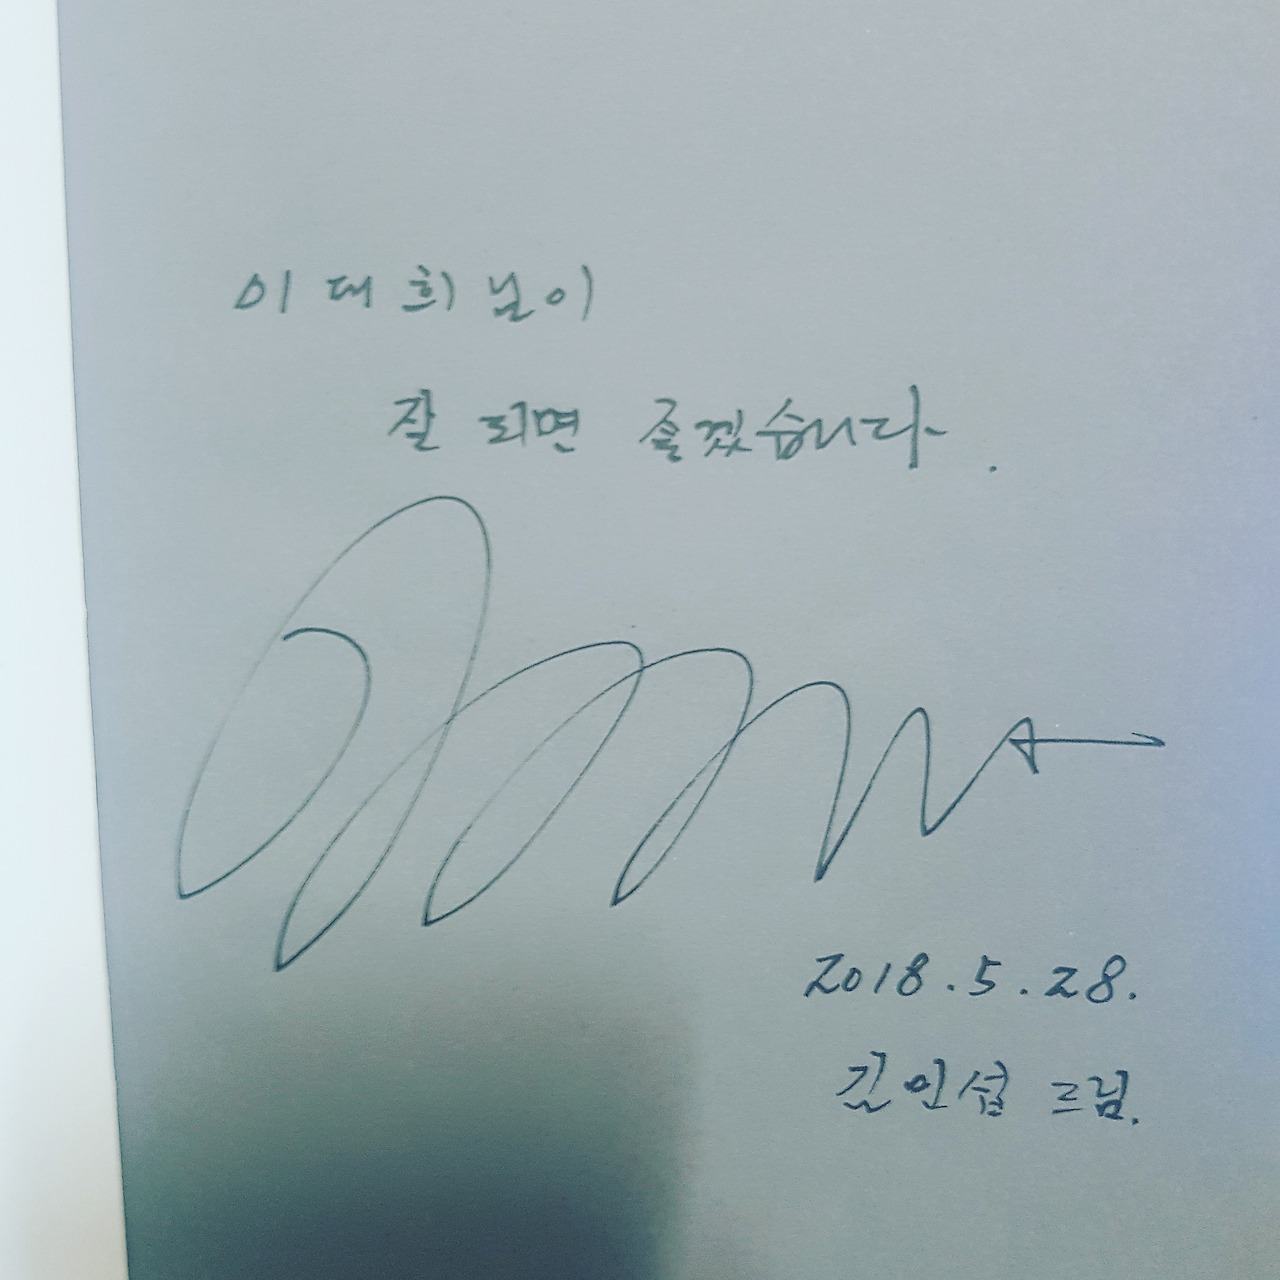 이대희님이
잘 되면 좋겠습니다.
2018.5.28.
김민섭 드림.